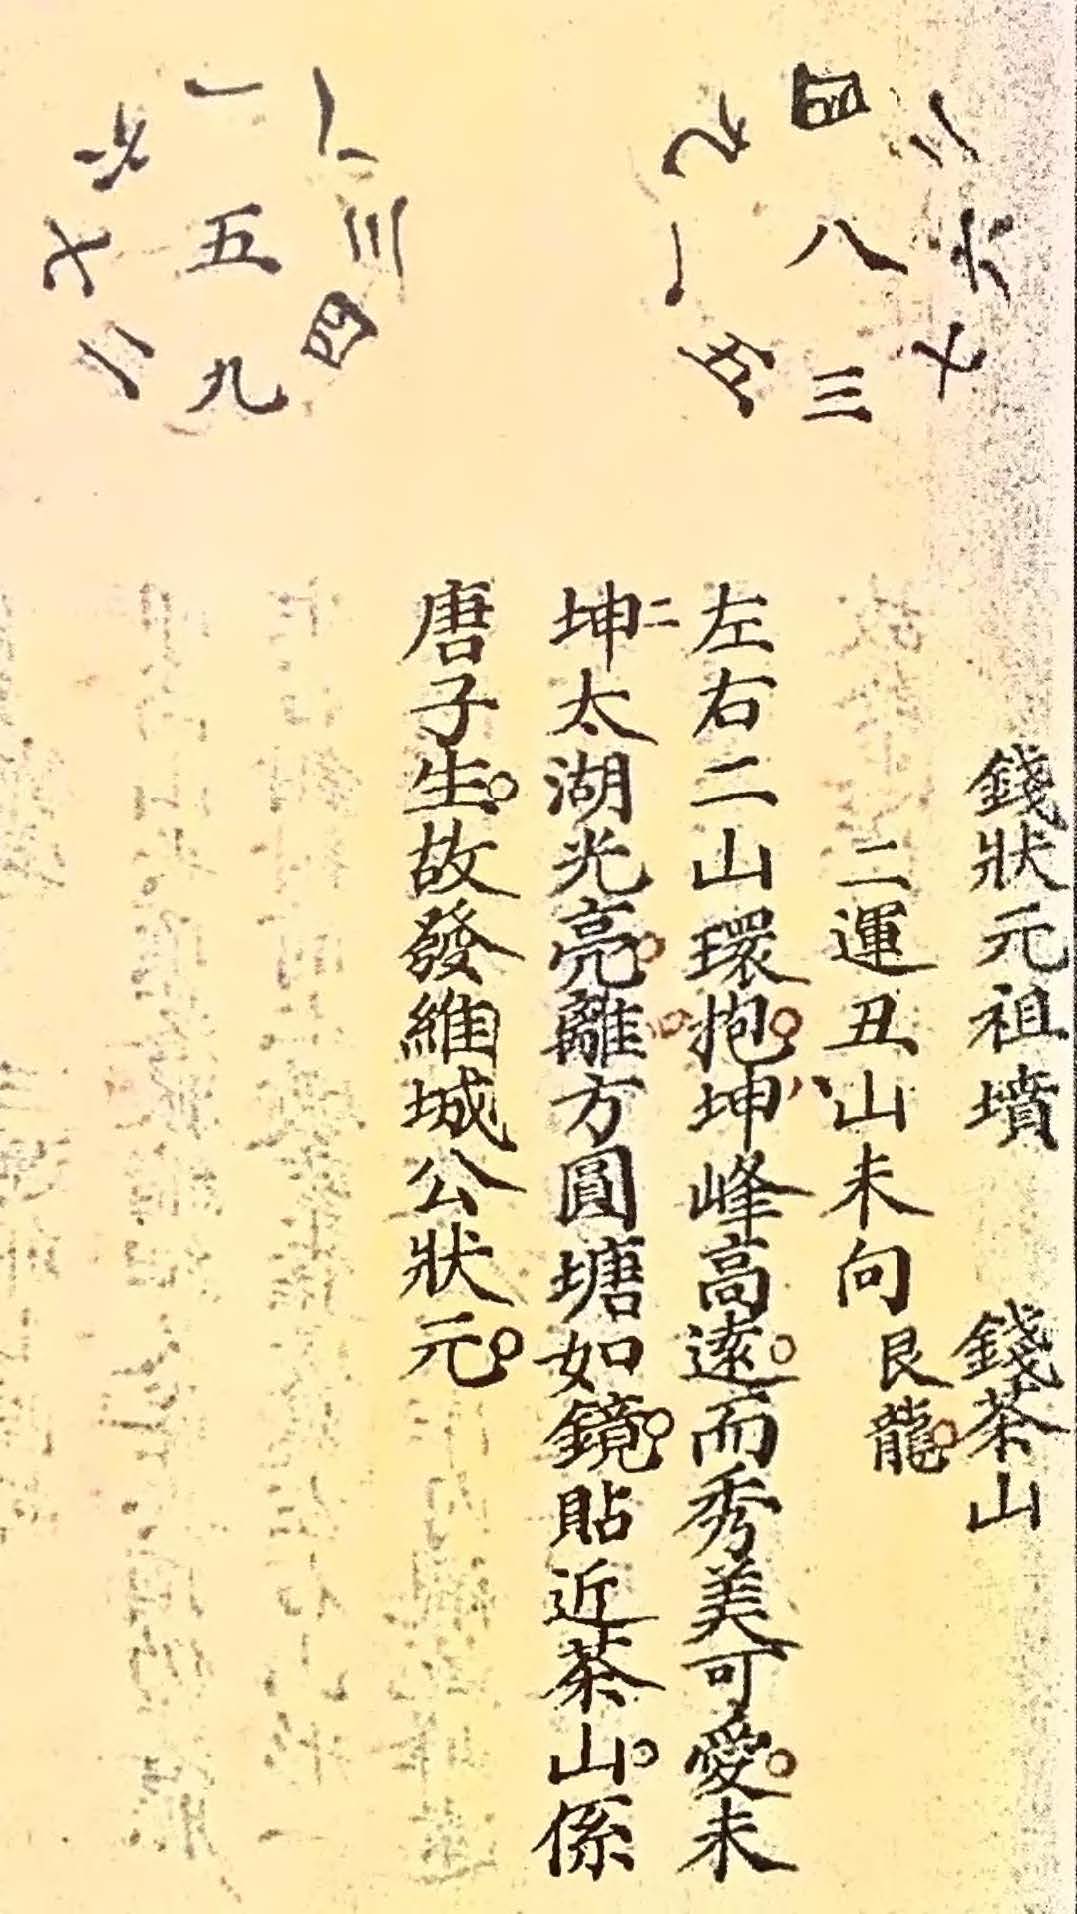 九 四 二
一 八 六
五 三 七
六 一 八
七 五 三
二 九 四
錢狀元祖墳 錢茶山
二運丑山未向 艮龍。
左右二山環抱。坤峰高遠。而秀美可愛。未
坤二太湖光亮。離方圓塘如鏡。貼近茶山。係
唐子生。故發維城公狀元。